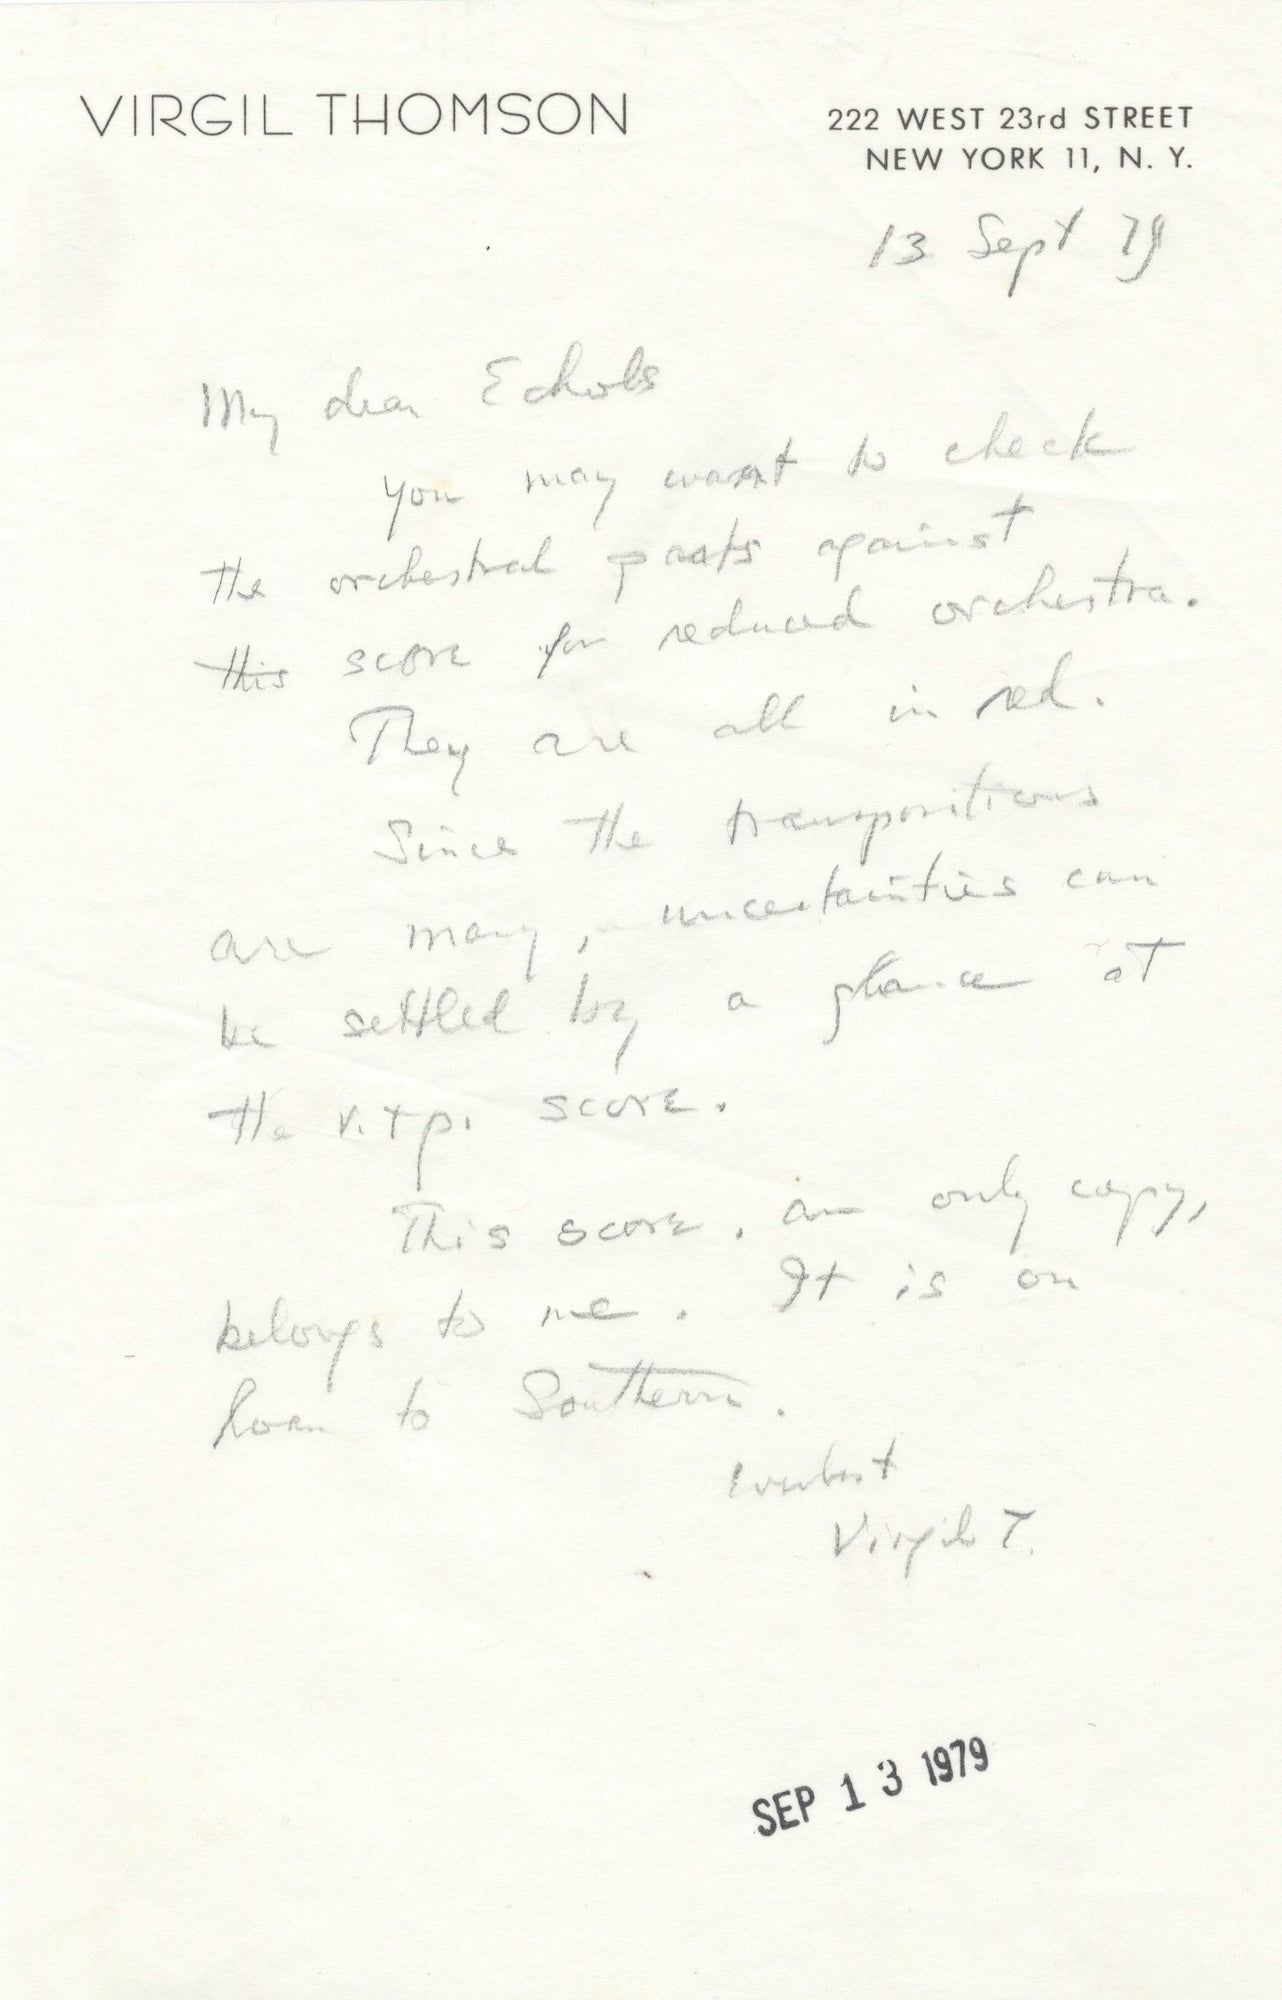 VIRGIL THOMSON
222 WEST 23rd STREET
NEW YORK 11, N. Y.
13 Sept 79
My dear Echols
You may want to check
the orchestral parts against
this score for reduced orchestra.
They are all in red.
Since the transpositions
are many, uncertainties can
be settled by a glance at
the v. + p. score.
This score, an only copy,
belongs to me. It is on
loan to Southern.
Everbest
Virgil T.
SEP 13 1979